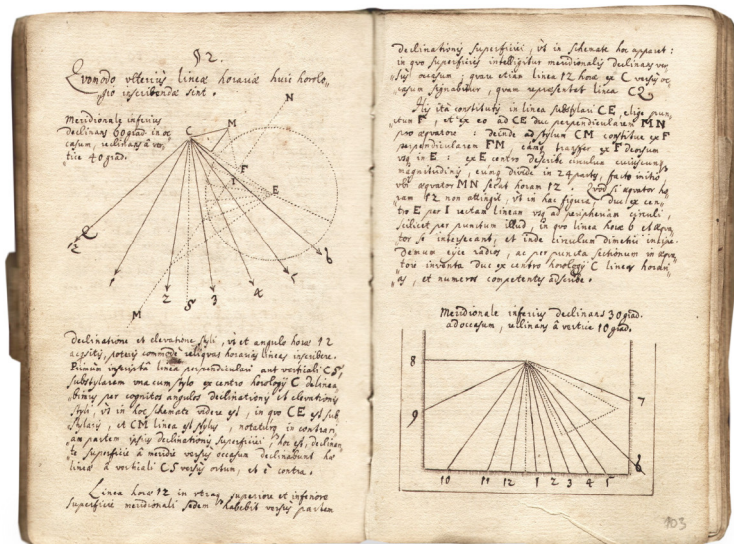 § 2.
Quomodo ulterius lineæ horariæ huic horolo-
gio inscribendæ sint.
Meridionale inferius
declinans 60 grad. in oc-
casum, reclinans à ver-
tice 40 grad.
N
C
M
F
I
E
12
1
2
S
3
4
5
6
M
declinatione et elevatione styli, ut et angulo horæ 12
acquisitis, poteris commode reliquas horarias lineas inscribere.
Primum inscripta linea perpendiculari aut verticali CS,
substylarem una cum stylo ex centro horologii C delinea-
bimus per cognitos angulos declinationis et elevationis
styli, ut in hoc schemate videre est, in quo CE est sub-
stylaris, et CM linea est stylus, notaturque in contrari-
am partem ipsius declinationis superficiei, hoc est, declinan-
te superficie à meridie versus occasum delinabunt hæ
lineæ à verticali CS versus ortum, et è contra.
Linea horæ 12 in utraque superiore et inferiore
superficie meridionali sedem habebit versus partem
declinationis superficiei, ut in schemate hoc apparet:
in quo superficies intelligitur meridionalis declinans ver-
sus occasum; quare etiam linea 12 horæ ex C versus oc-
casum signabitur, quam repræsentet linea C
His ita constitutis in linea substylari CE, elige pun-
ctum F, et ex eo ad CE duc perpendicularem MN
pro æquatore: deinde ad stylum CM constitue ex F
perpendicularem FM, eamque transfer ex F deorsum
usque in E: ex E centro describe circulum cuiuscunque
magnitudinis, eumque divide in 24 partes, facto initio
ubi æquator MN secat horam 12. Quod si æquator ho-
ram 12 non attingit, ut in hac figura, duc ex cen-
tro E per I rectam lineam usque ad peripheriam circuli,
scilicet per punctum illud, in quo linea horæ 6 et æqua-
tor se intersecant, et inde circulum dimetiri incipe.
Demum ejice radios, ac per puncta sectionum in æqua-
tore inventa duc ex centro horologii C lineas horari-
as, et numeros competentes adscribe.
Meridionale inferius declinans 30 grad.
ad occasum, reclinans à vertice 10 grad.
8
9
7
6
10 11 12 1 2 3 4 5
103